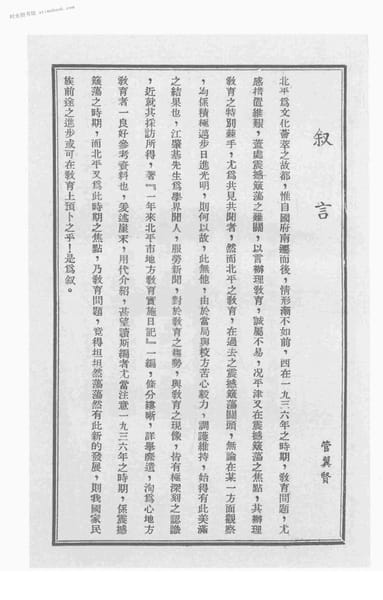 叙言
管翼賢
北平為文化薈萃之故都，惟自國府南遷而後，情形漸不如前，西在一九三六年之時期，敎育問題，尤
感措置維艱，蓋處震撼簸蕩之難關，以言辦理敎育，誠屬不易，况平津又在震撼簸蕩之焦點，其辦理
敎育之特別棘手，尤為共見共聞者，然而北平之敎育，在過去之震撼簸蕩關頭，無論在某一方面觀察
，均係積極邁步日進光明，則何以故，此無他，由於當局與校方苦心毅力，調護維持，始得有此美滿
之結果也，江肇基先生為學界聞人，服勞新聞，對於敎育之趨勢，與敎育之現像，皆有極深刻之認識
，近就其採訪所得，著『一年來北平市地方敎育實施日記』一編，條分縷晰，詳舉靡遺，洵為心地方
敎育者一良好參考資料也，爰述崖末，用代介紹，甚望讀斯編者尤當注意一九三六年之時期，係震撼
簸蕩之時期，而北平又為此時期之焦點，乃敎育問題，竟得坦坦然蕩蕩然有此新的發展，則我國家民
族前途之進步或可在敎育上預卜之乎！是為叙。